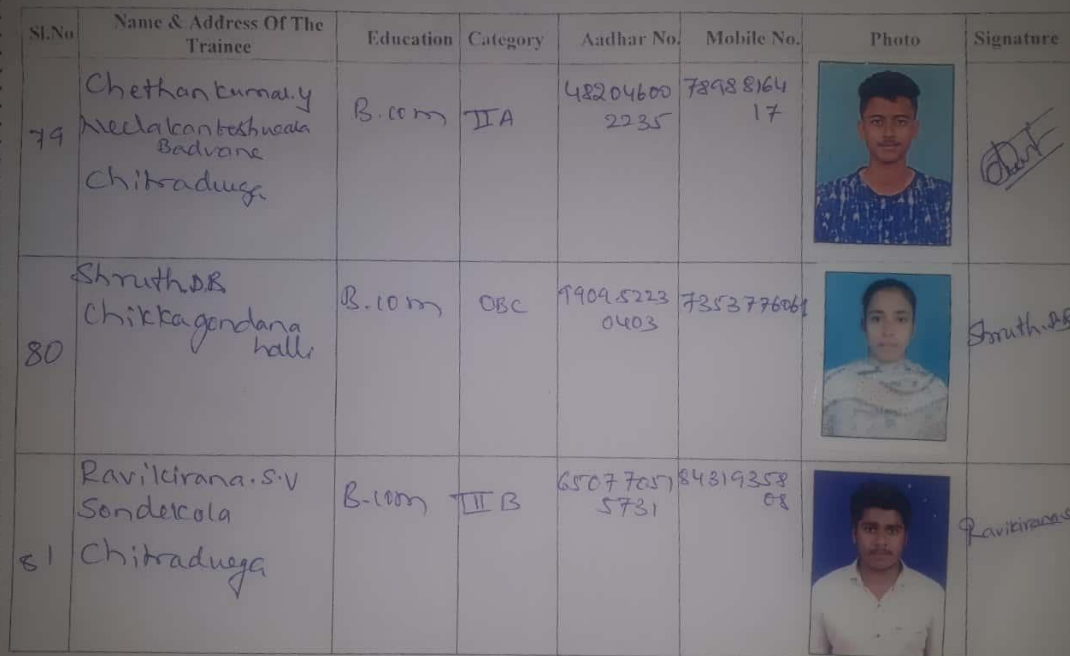 Sl.No
Name & Address Of The
Trainee
Education
Category
Aadhar No.
Mobile No.
Photo
Signature
79
Chethan kumar.y
Badvane
Chitradurga
B.com
IIA
48204600
2235
78988164
17
80
Shruth.D.B
Chikkagondana
halli
B.com
OBC
9909 5223
0403
7353776061
Shruth.D.B
81
Ravikirana.S.V
Sondekola
Chitradurga
B.com
III B
6507 7051
5731
84319358
08
Ravikirana.S